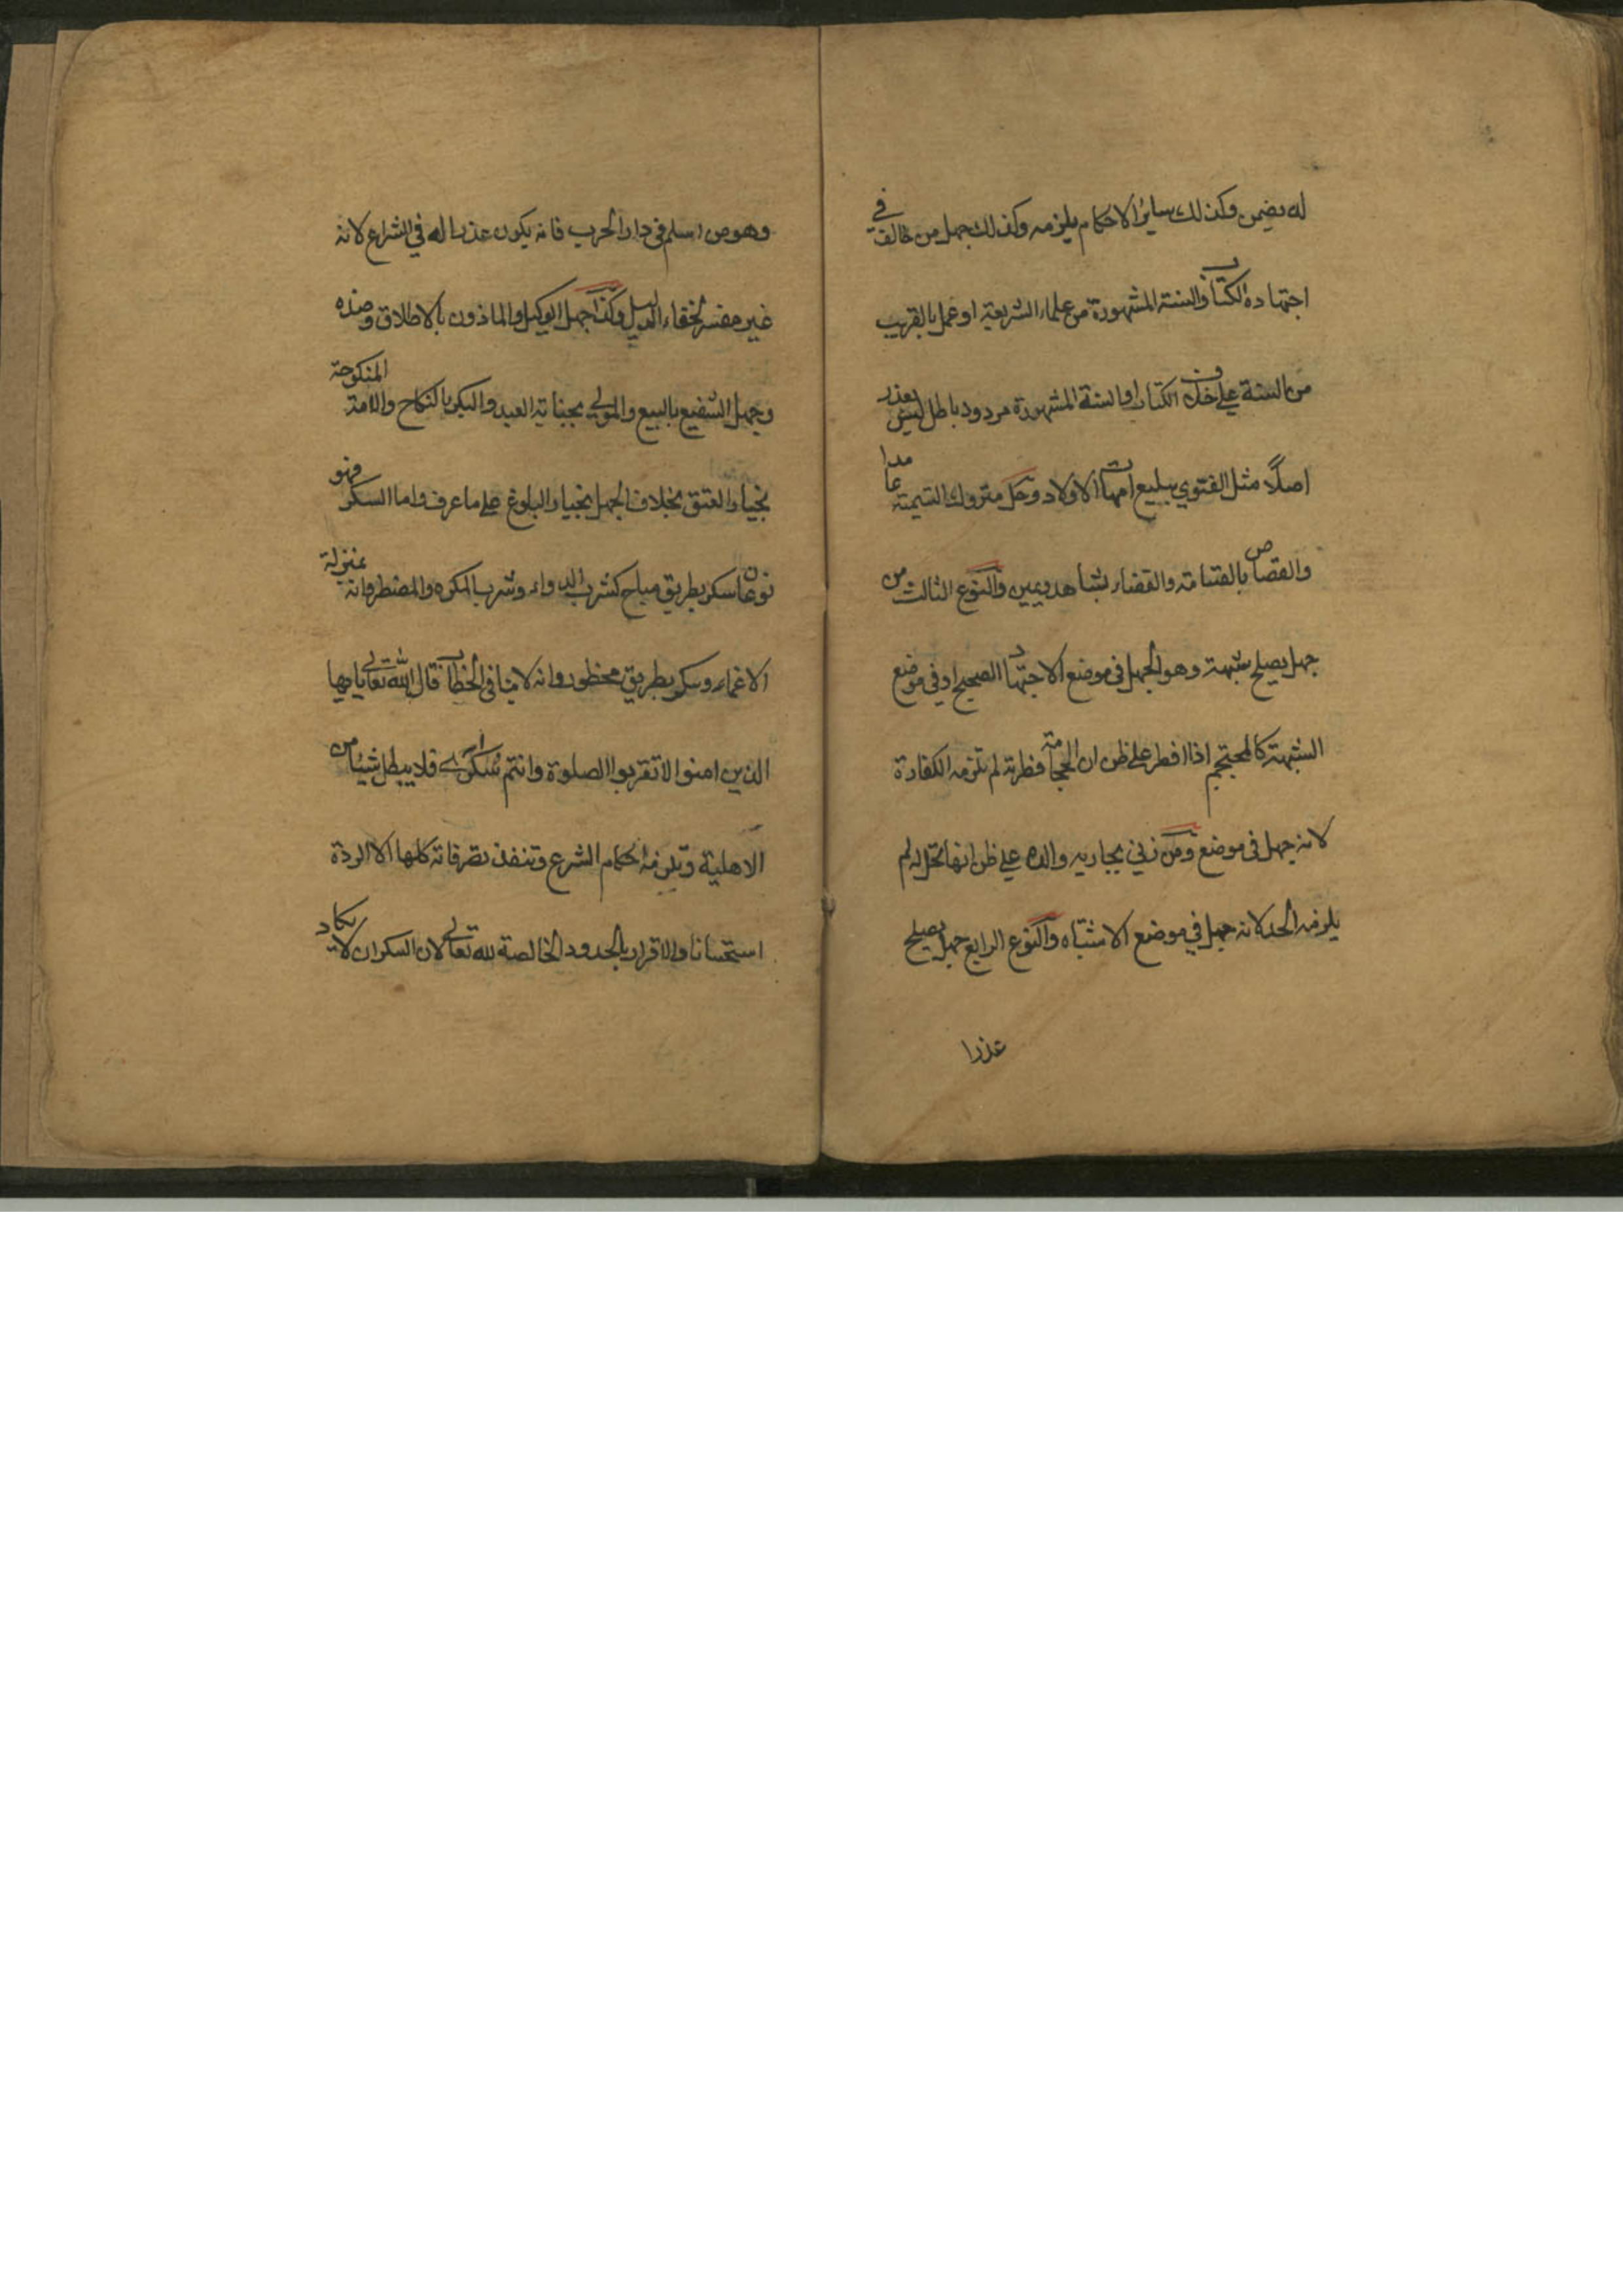 له يضمن وكذلك سائر الاحكام يلزمه وكذلك جهل من خالف في
اجتهاده الكتاب والسنة المشهورة من علماء الشريعة او عمل بالغريب
من السنة على خلاف الكتاب او السنة المشهورة مردود باطل ليس بعذر
اصلاً مثل الفتوي ببيع امهات الاولاد وحل متروك التسمية عامدا
والقصاص بالقسامة والقضاء بشاهد ويمين والنوع الثالث من
جهل يصلح شبهة وهو الجهل في موضع الاجتهاد الصحيح او في موضع
الشبهة كالمحتجم اذا افطر على ظن ان الحجامة فطرته لم تلزمه الكفارة
لانه جهل في موضع ومن زني بجارية والده على ظن انها تحل له لم
يلزمه الحد لانه جهل في موضع الاشتباه والنوع الرابع جهل يصلح
عذرا
وهو من اسلم في دار الحرب فانه يكون عذرا له في الشرايع لانه
غير مقصر لخفاء الدليل وكذا جهل الوكيل والماذون بالاطلاق وضده
وجهل الشفيع بالبيع والمولي بجناية العبد والبكر بالنكاح والامة المنكوحة
بخيار العتق بخلاف الجهل بخيار البلوغ على ما عرف واما السكر فهو
نوعان سكر بطريق مباح كشرب الدواء وشرب المكره والمضطر وانه بمنزلة
الاغماء وسكر بطريق محظور وانه لا ينافي الخطاب قال الله تعالى يا ايها
الذين امنوا لا تقربوا الصلوة وانتم سكارى فلا يبطل شيئا من
الاهلية وتلزمه احكام الشرع وتنفذ تصرفاته كلها الا الردة
استحسانا والاقرار بالحدود الخالصة لله تعالى لان السكران لا يكاد